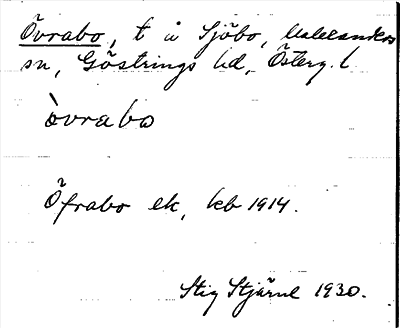 Övrabo, t å Sjöbo, Malexanders
sn, Göstrings hd, Österg. l
òvrabo
Öfrabo ek, kb 1914.
Stig Stjärne 1930.